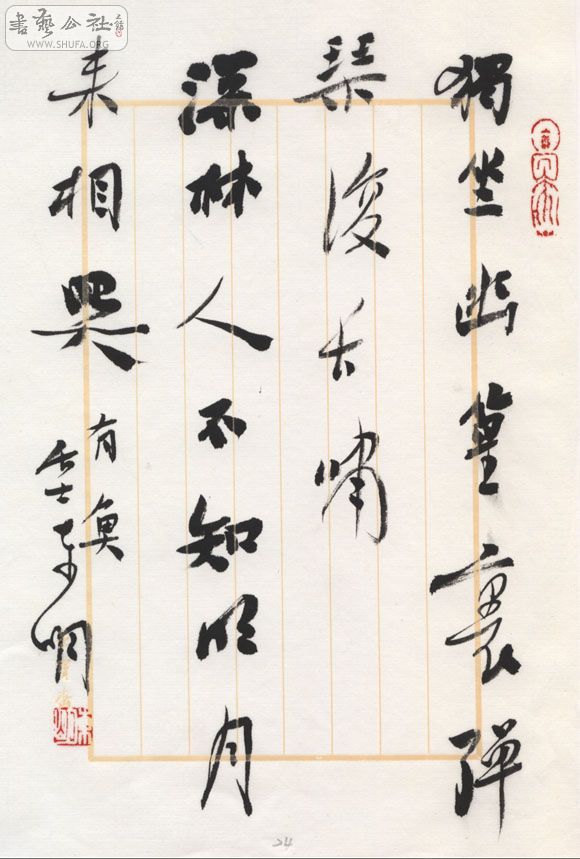 書藝公社
WWW.SHUFA.ORG
獨坐幽篁裏彈
琴復长嘯
深林人不知明月
来相照
24